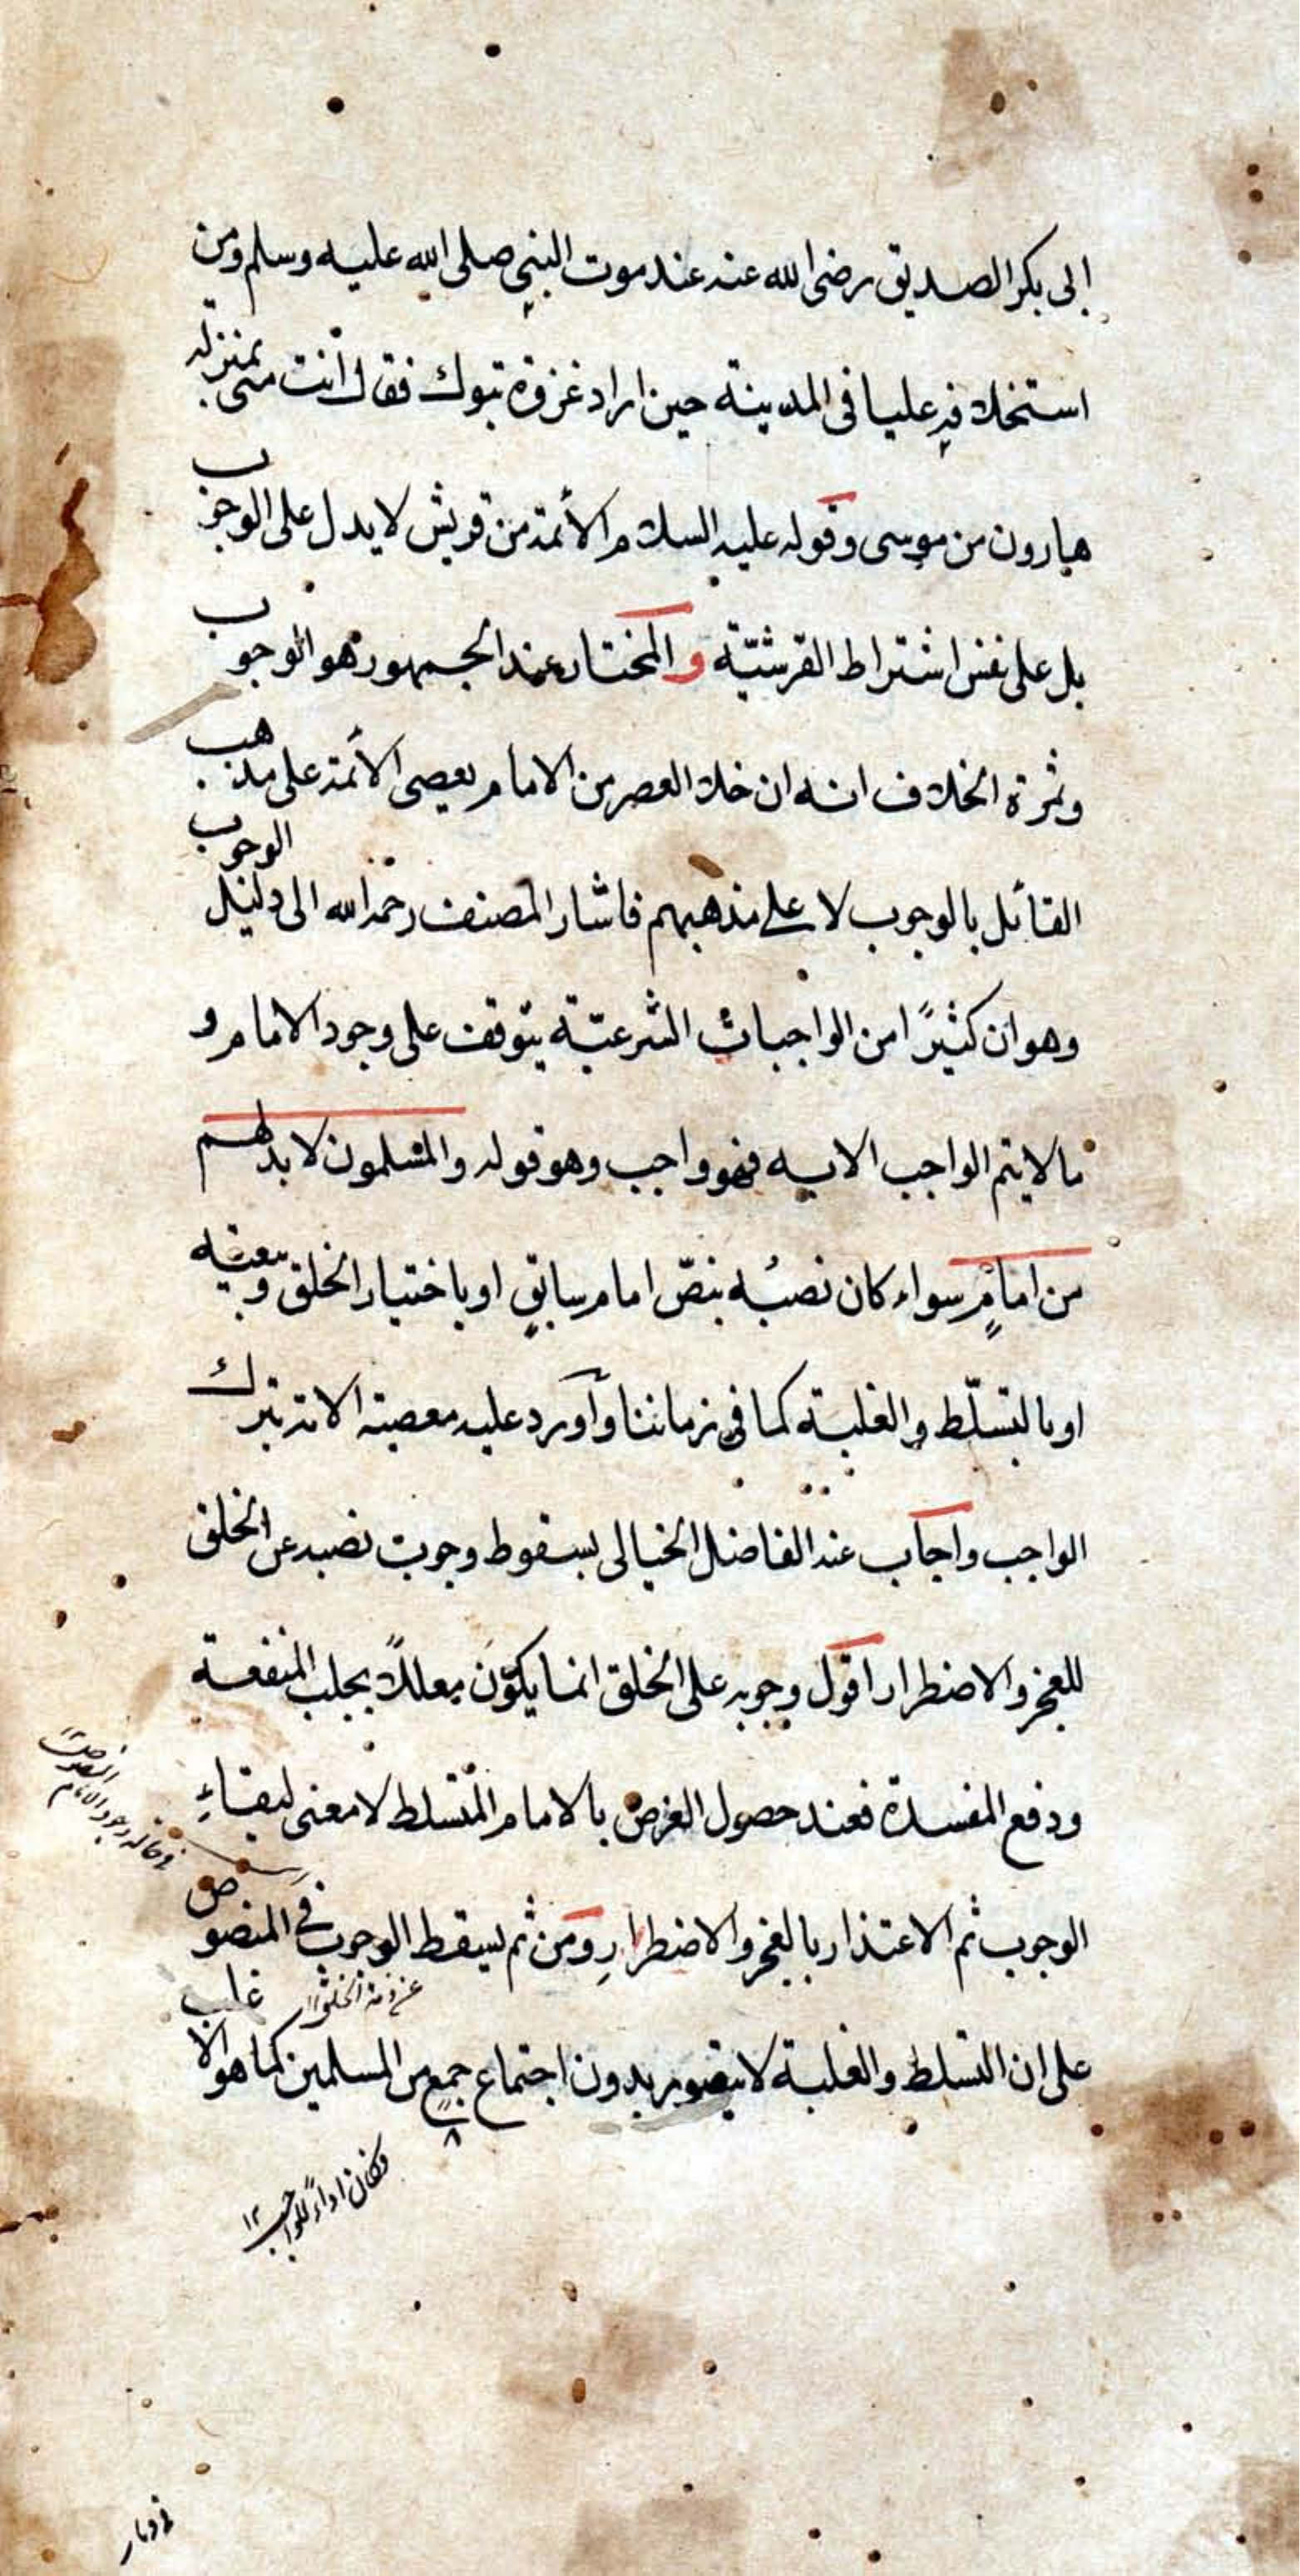 ابى بكر الصديق رضى الله عنه عند موت النبي صلى الله عليه وسلم ومن
استخلافه عليا فى المدينة حين اراد غزوة تبوك فقال أنت منى بمنزلة
هارون من موسى وقوله عليه السلام الأئمة من قريش لا يدل على الوجوب
بل على نفس اشتراط القرشيّة والمختار عند الجمهور هو الوجوب
وثمرة الخلاف انه ان خلا العصر من الامام يعصى الأئمة على مذهب
القائل بالوجوب لا على مذهبهم فاشار المصنف رحمه الله الى دليل الوجوب
وهو ان كثيرًا من الواجبات الشرعيّة يتوقف على وجود الامام و
ما لا يتم الواجب الا به فهو واجب وهو قوله والمسلمون لا بد لهم
من امامٍ سواء كان نصبُه بنصّ امام سابقٍ او باختيار الخلق وبيعته
او بالتسلّط والغلبة كما فى زماننا وأورد عليه معصية الامة بترك
الواجب واجاب عنه الفاضل الخيالى بسقوط وجوب نصبه عن الخلق
للعجز والاضطرار اقول وجوبه على الخلق انما يكون معللاً بجلب المنفعة
ودفع المفسدة فعند حصول الغرض بالامام المتسلط لا معنى لبقاءِ
الوجوب ثم الاعتذار بالعجز والاضطرارِ ومن ثم يسقط الوجوب فى المنصوص
عن ذمة الخلق ١٢
على ان التسلط والغلبة لا يتصور بدون اجتماع جمعٍ من المسلمين كما هو الاغلب
فكان اداءً للواجب ١٢